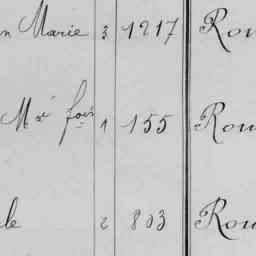 n Marie 3 1217 Rou
Mie fois 1 155 Rou
le 2 803 Rou